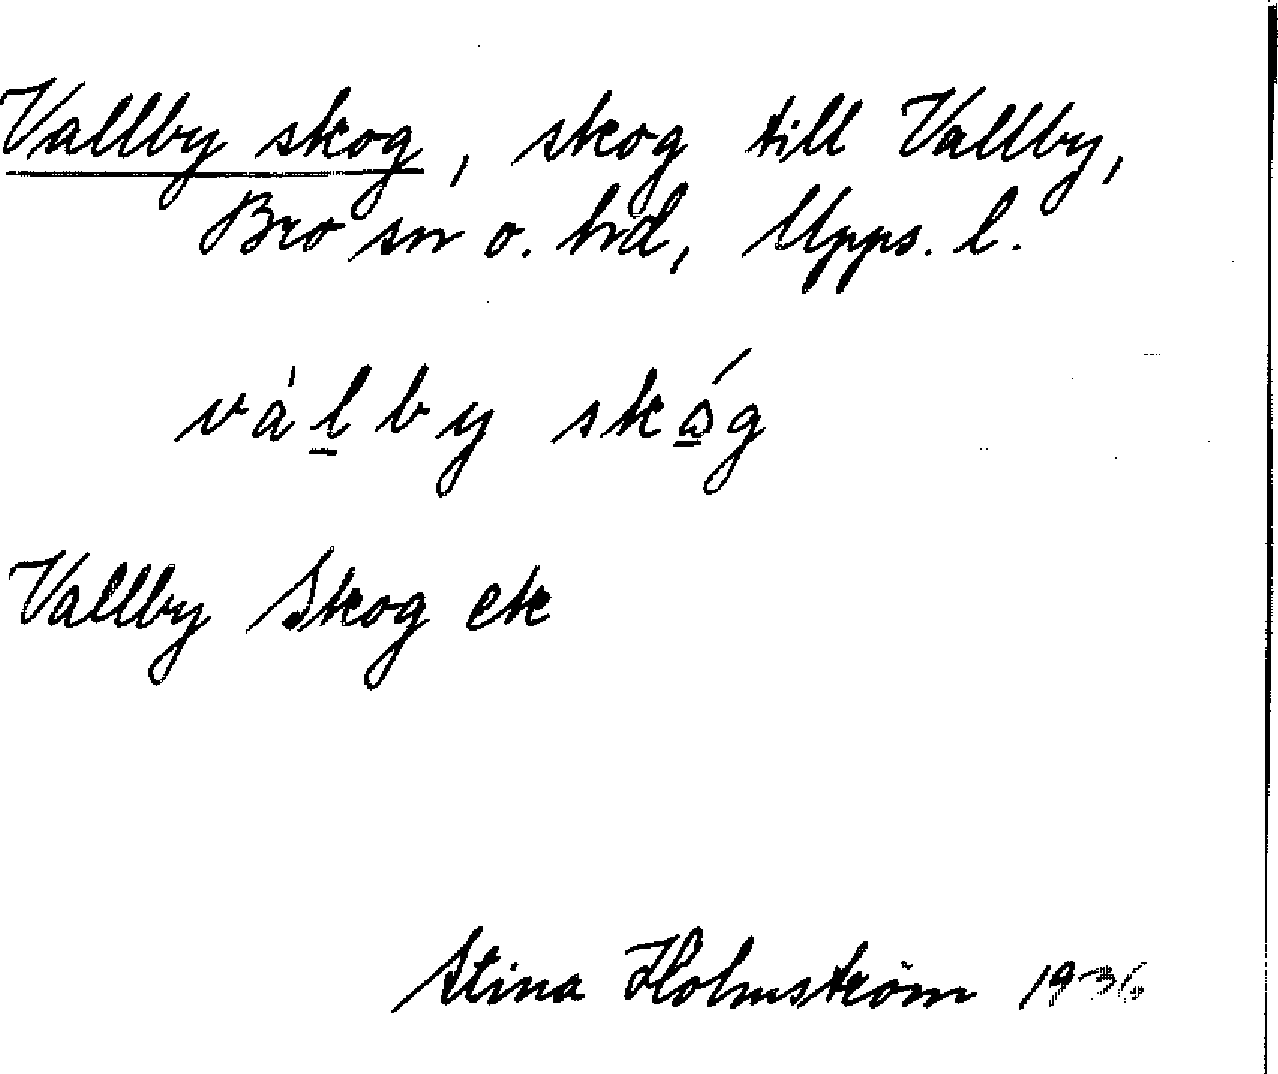 Vallby skog, skog till Vallby,
Bro sn o. hd, Upps. l.
vàlby skǻg
Vallby Skog ek
Stina Holmström 1936